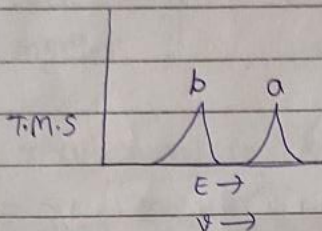 b a
T.M.S
E →
ν →